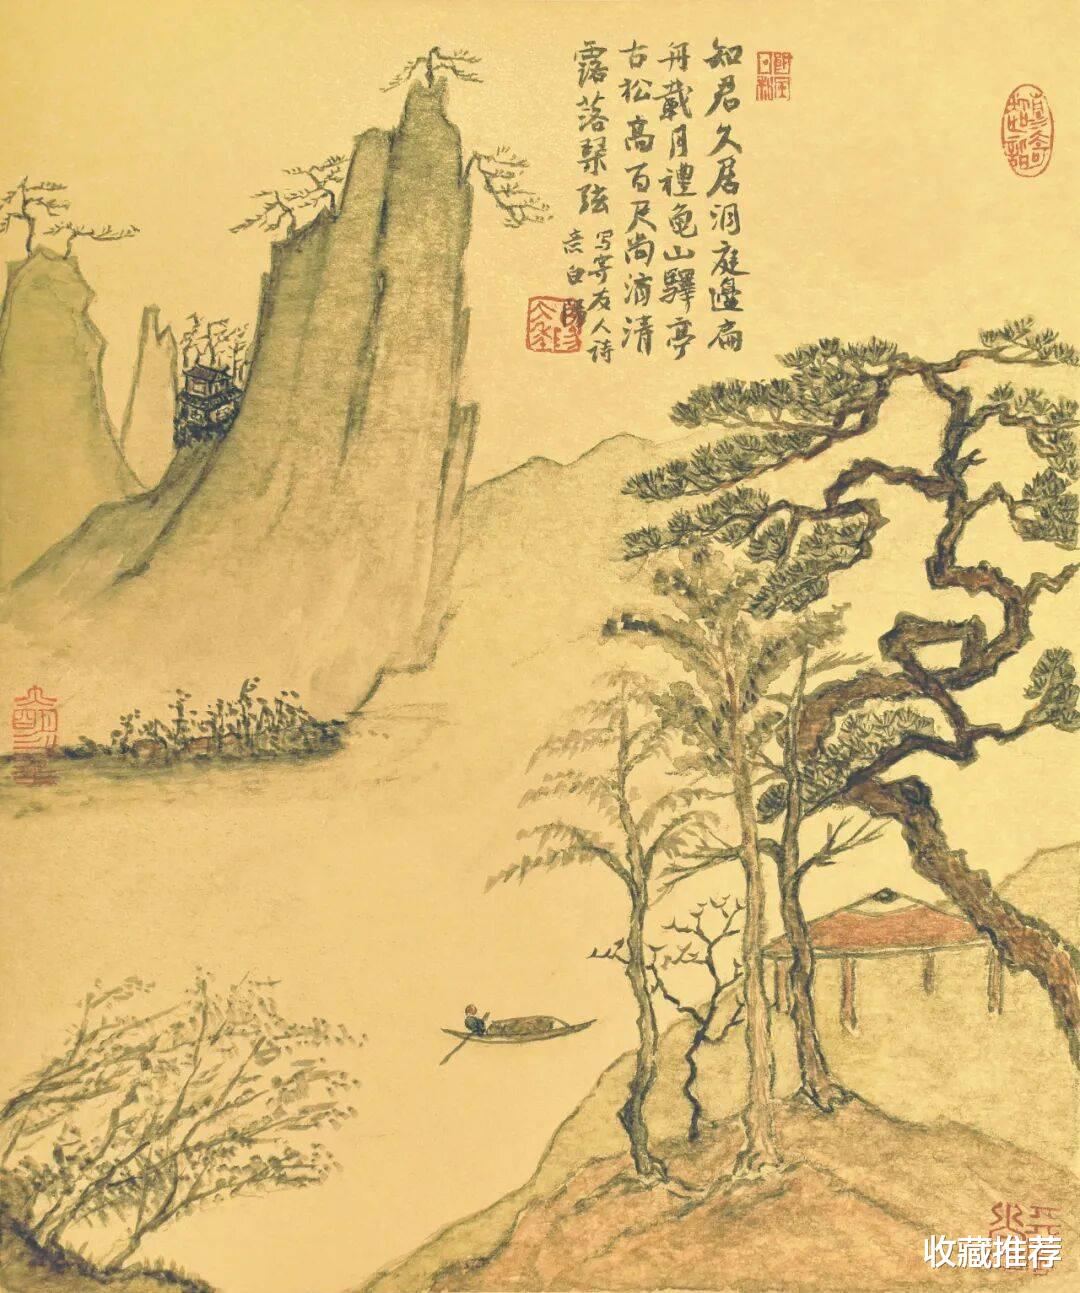 知君久居洞庭邊扁
舟載月禮龜山驛亭
古松高百尺尚滴清
露落琴弦
写寄友人诗
意白陽
收藏推荐